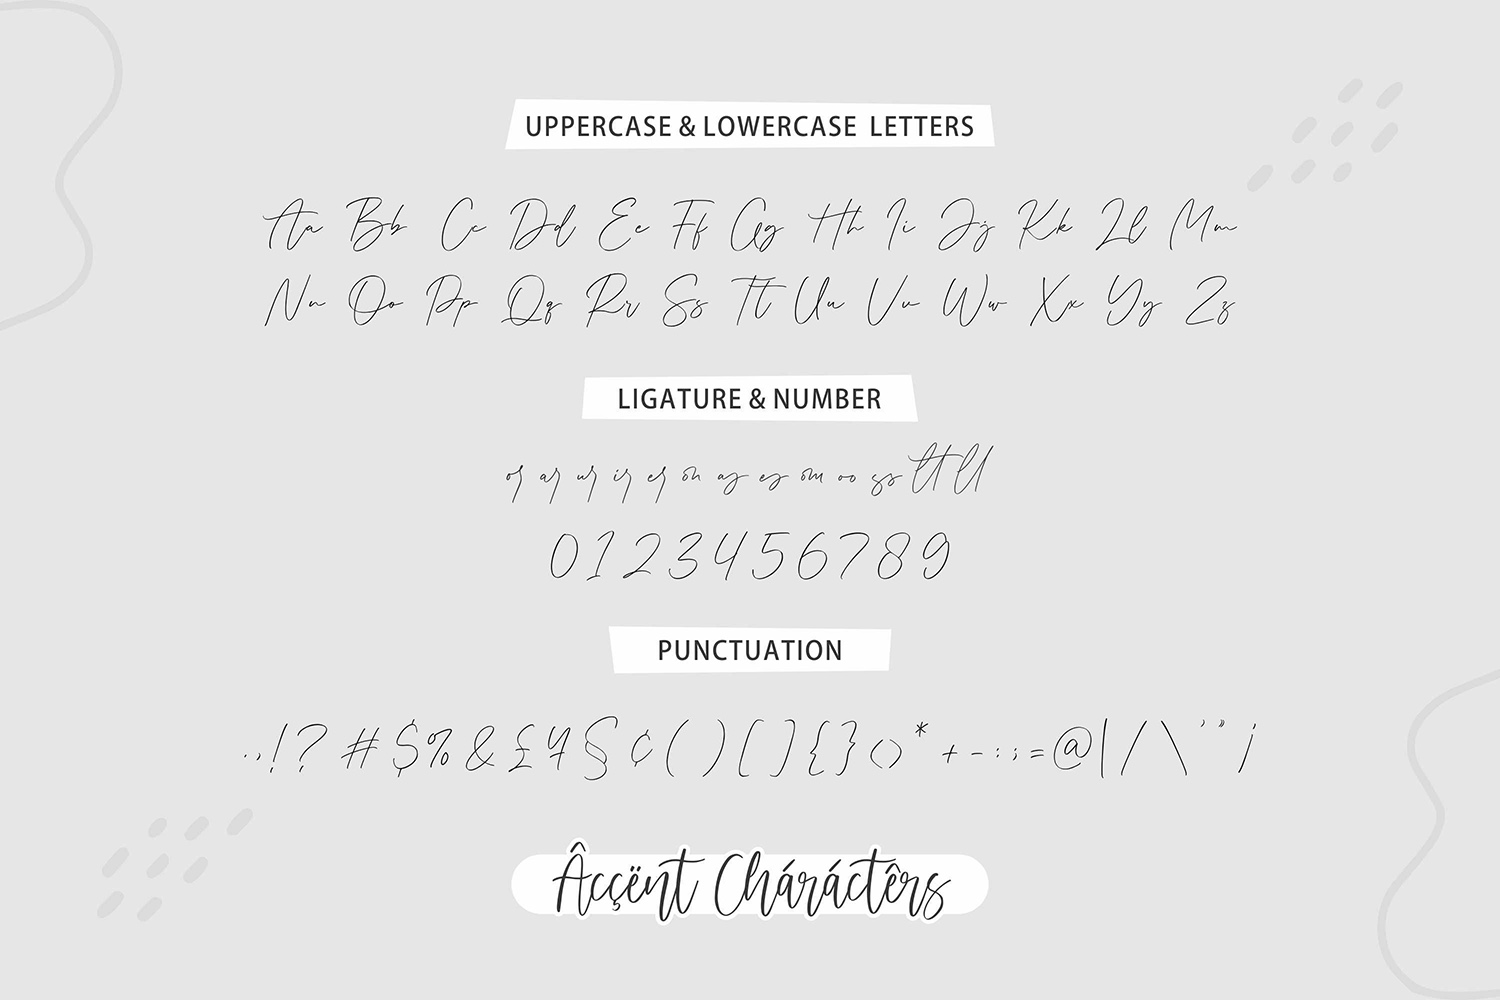 UPPERCASE & LOWERCASE LETTERS
Aa Bb Cc Dd Ee Ff Gg Hh Ii Jj Kk Ll Mm
Nn Oo Pp Qq Rr Ss Tt Uu Vv Ww Xx Yy Zz
LIGATURE & NUMBER
or ar ur ir er on as es om oo ss tt ll
0 1 2 3 4 5 6 7 8 9
PUNCTUATION
. , ! ? # $ % & £ ¥ § ¢ ( ) [ ] { } < > * + - : ; = @ | / \ ' " ¡
Âççënt Cháráctêrs